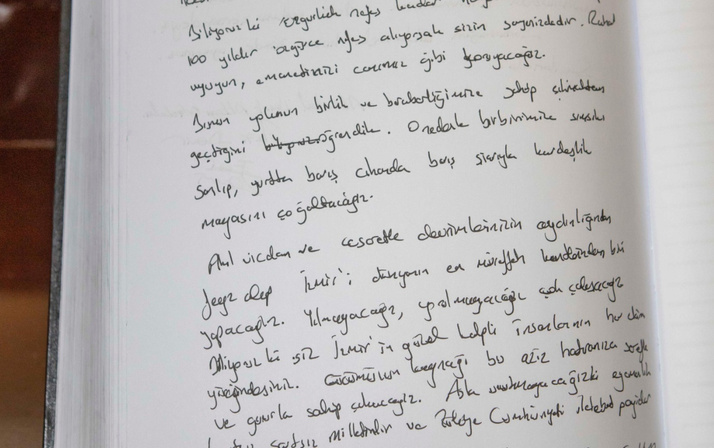 Biliyoruz ki özgürlük nefes kadar
100 yıldır özgürce nefes alıyorsak sizin sayenizdedir. Rahat
uyuyun, emanetinizi canımız gibi koruyacağız.
Bunun yolunun birlik ve beraberliğimize sahip çıkmaktan
geçtiğini öğrendik. O nedenle birbirimize sıkı sıkı
sarılıp, yurtta barış cihanda barış şiarıyla kardeşlik
mayasını çoğaltacağız.
Akıl vicdan ve cesaretle devrimlerinizin aydınlığından
feyz alıp İzmir'i dünyanın en müreffeh kentlerinden biri
yapacağız. Yılmayacağız, yorulmayacağız çok çalışacağız
Biliyoruz ki siz İzmir'in güzel kalpli insanlarının her daim
yüreğindesiniz. Gücümüzün kaynağı bu aziz hatıranıza
ve gururla sahip çıkacağız. Asla unutmayacağız ki egemenlik
milletindir ve Türkiye Cumhuriyeti ilelebet payidar